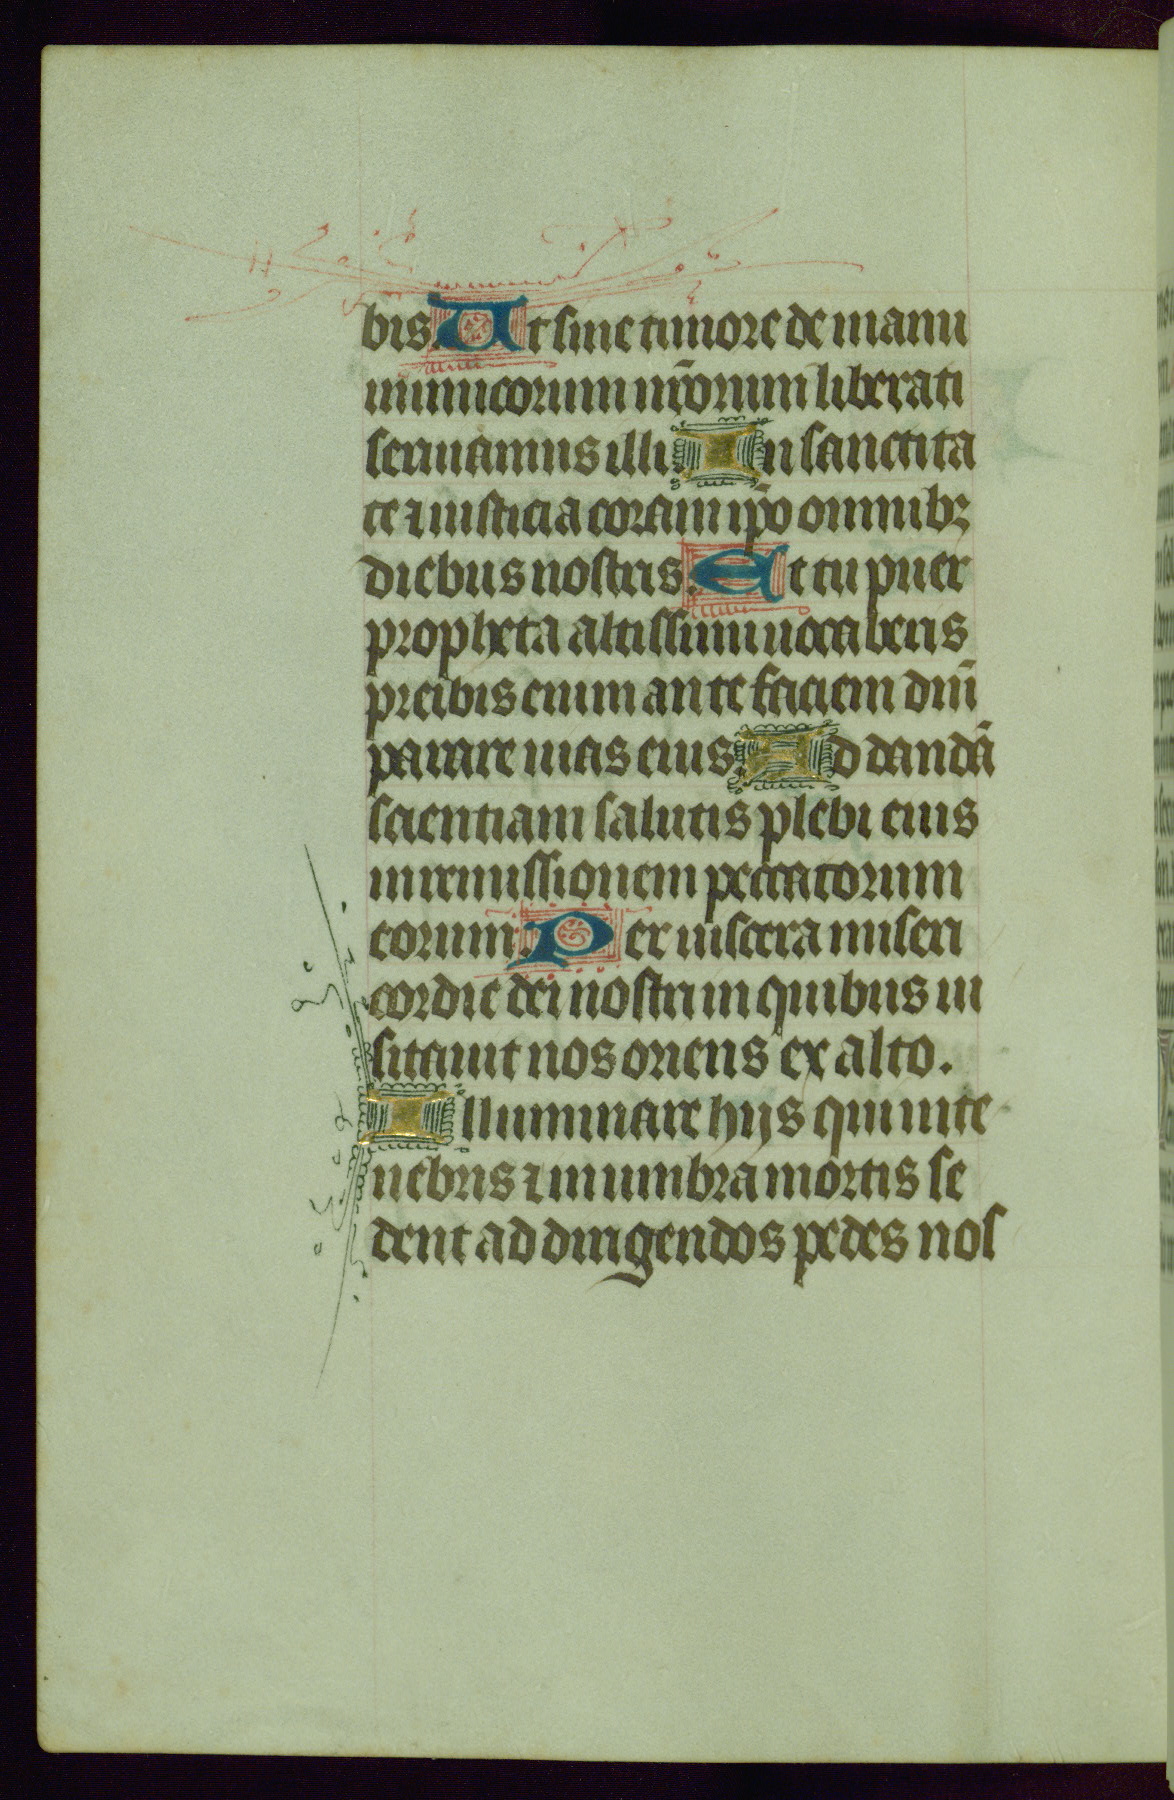 bis. Ut sine timore de manu
inimicorum nr̄orum liberati
seruiamus illi. In sanctita
te ⁊ iusticia coram ip̄o omnibꝫ
diebus nostris. Et tu puer
propheta altissimi uocaberis
preibis enim ante faciem dn̄i
parare uias eius. Ad dandā
scientiam salutis plebi eius
in remissionem peccatorum
eorum. Per uiscera miseri
cordie dei nostri in quibus ui
sitauit nos oriens ex alto.
Illuminare hijs qui in te
nebris ⁊ in umbra mortis se
dent ad dirigendos pedes nos